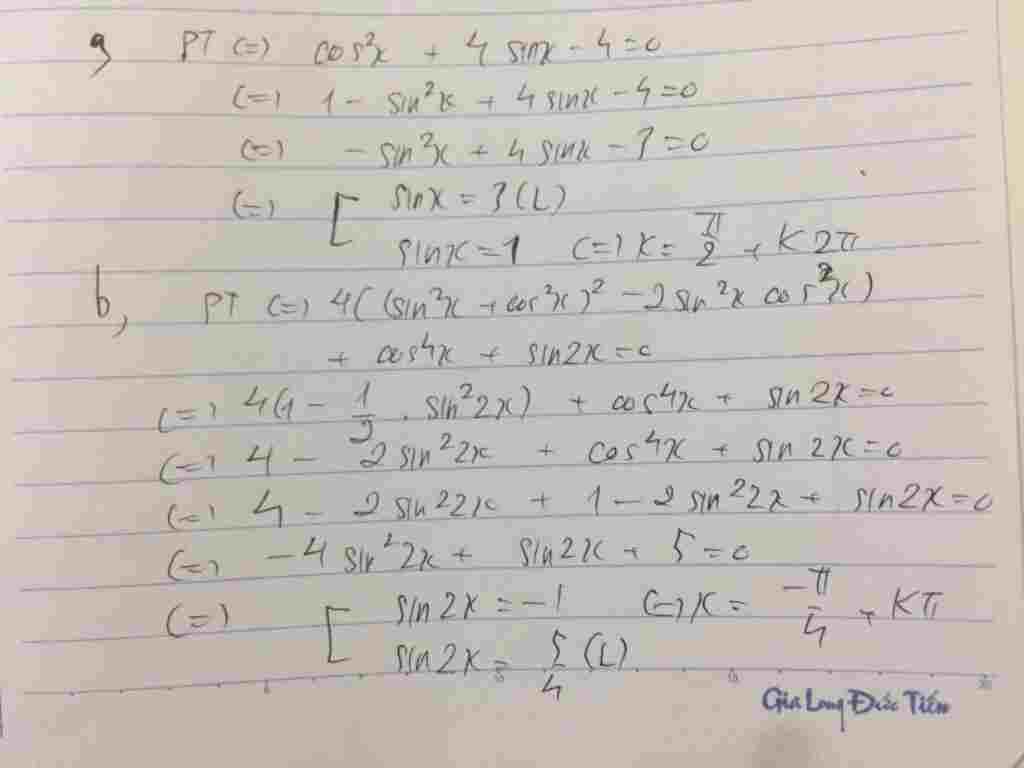 a, PT (=) cos²x + 4 sinx - 4 = 0
(=) 1 - sin²x + 4 sinx - 4 = 0
(=) - sin²x + 4 sinx - 3 = 0
(=) [ sinx = 3 (L)
sinx = 1 (=) x = π/2 + K2π
b, PT (=) 4((sin²x + cos²x)² - 2 sin²x cos²x)
+ cos4x + sin2x = 0
(=) 4(1 - 1/2 . sin²2x) + cos4x + sin2x = 0
(=) 4 - 2 sin²2x + cos4x + sin2x = 0
(=) 4 - 2 sin²2x + 1 - 2 sin²2x + sin2x = 0
(=) -4 sin²2x + sin2x + 5 = 0
(=) [ sin2x = -1 (=) x = -π/4 + Kπ
sin2x = 5/4 (L)
Gia Long Đức Tiến